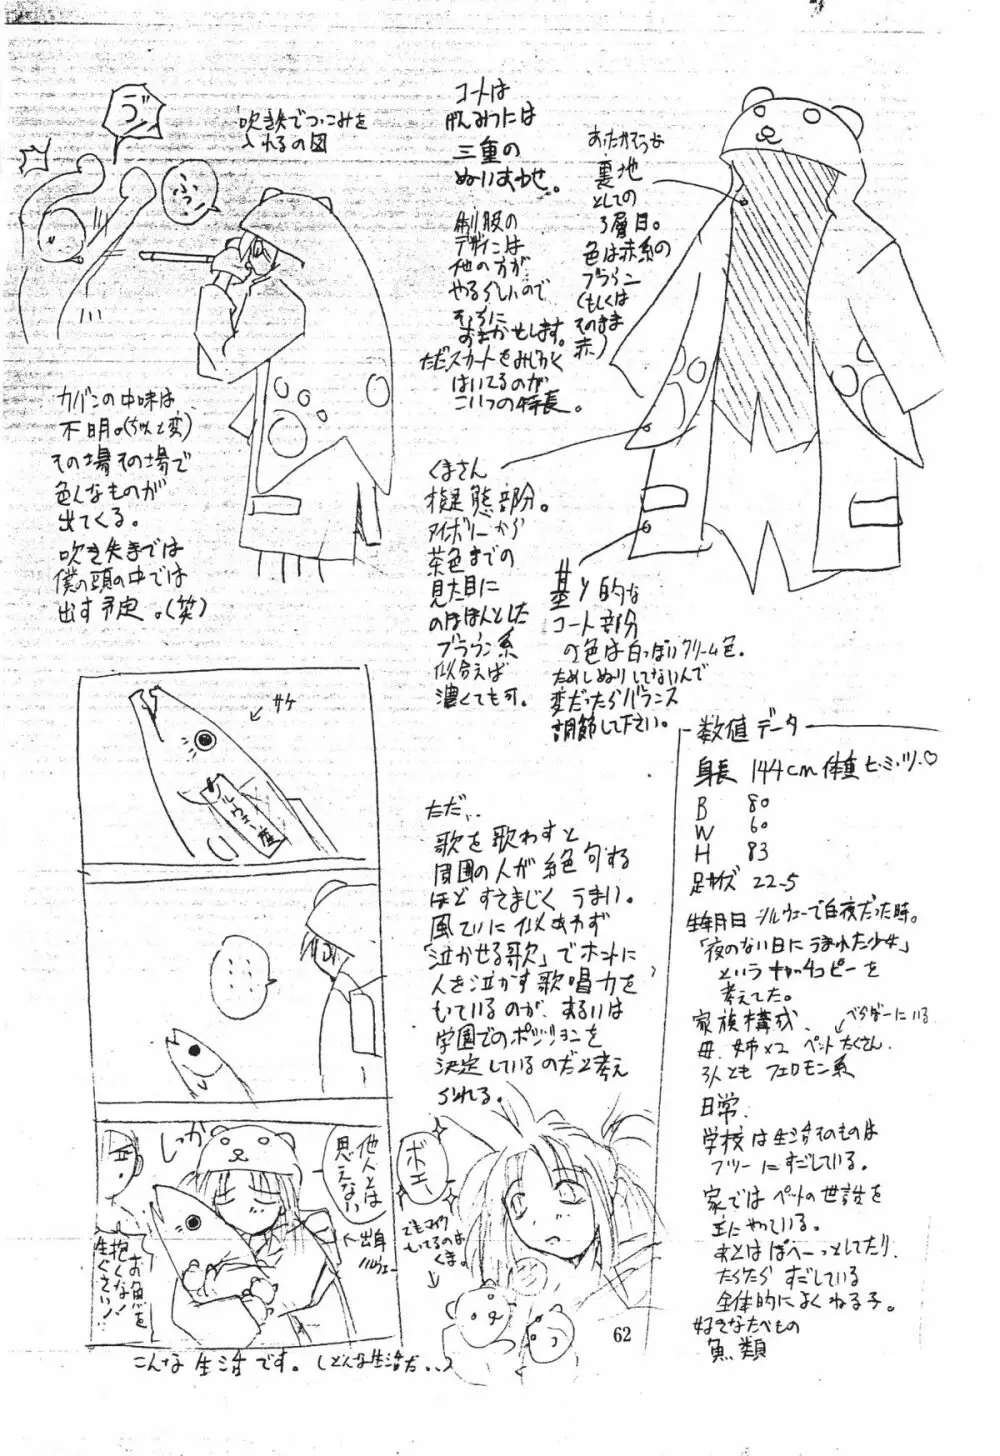 吹き矢でつっこみを
入れるの図
ふっ!
コートは
げんみつには
三重の
ぬいあわせ。
制服の
デザインは
他の方が
やるらしいので
そちらに
おまかせします。
ただスカートをみじかく
はいてるのが
こいつの特長。
あったかそうな
裏地
としての
3層目。
色は赤系の
ブラウン
(もしくは
そのまま
赤)
カバンの中味は
不明。(ちょいと変)
その場その場で
色んなものが
出てくる。
吹き矢までは
僕の頭の中では
出す予定。(笑)
くまさん
擬態部分。
アイボリーから
茶色までの
見た目に
のほほんとした
ブラウン系
似合えば
濃くても可。
基本的な
コート部分
の色は白っぽいクリーム色。
ためしぬりしてないんで
変だったらバランス
調節して下さい。
サケ
ノルウェー産
しっか
他人とは
思えない
出身
ノルウェー
お魚を
抱くな!
生ぐさい!
こんな生活です。(どんな生活だ..)
ただ..
歌を歌わすと
周囲の人が絶句する
ほどすさまじくうまい。
風ていに似あわず
「泣かせる歌」でホントに
人を泣かす歌唱力を
もっているのが、あるいは
学園でのポジションを
決定しているのだと考え
られる。
ボエー
でもマイク
もってるのは
くま。
数値データ
身長 144cm 体重 ヒ・ミ・ツ・♡
B 80
W 60
H 83
足サイズ 22.5
生年月日 ノルウェーで白夜だった時。
「夜のない日にうまれた少女」
というキャッチコピーを
考えてた。
家族構成、
べらぼーにいる
母、姉×2 ペットたくさん
3人とも フェロモン系
日常、
学校は生活そのものは
フツーにすごしている。
家ではペットの世話を
主にやっている。
あとはぽへーっとしてたり、
だらだらすごしている
全体的によくねる子。
好きなたべもの
魚類
62